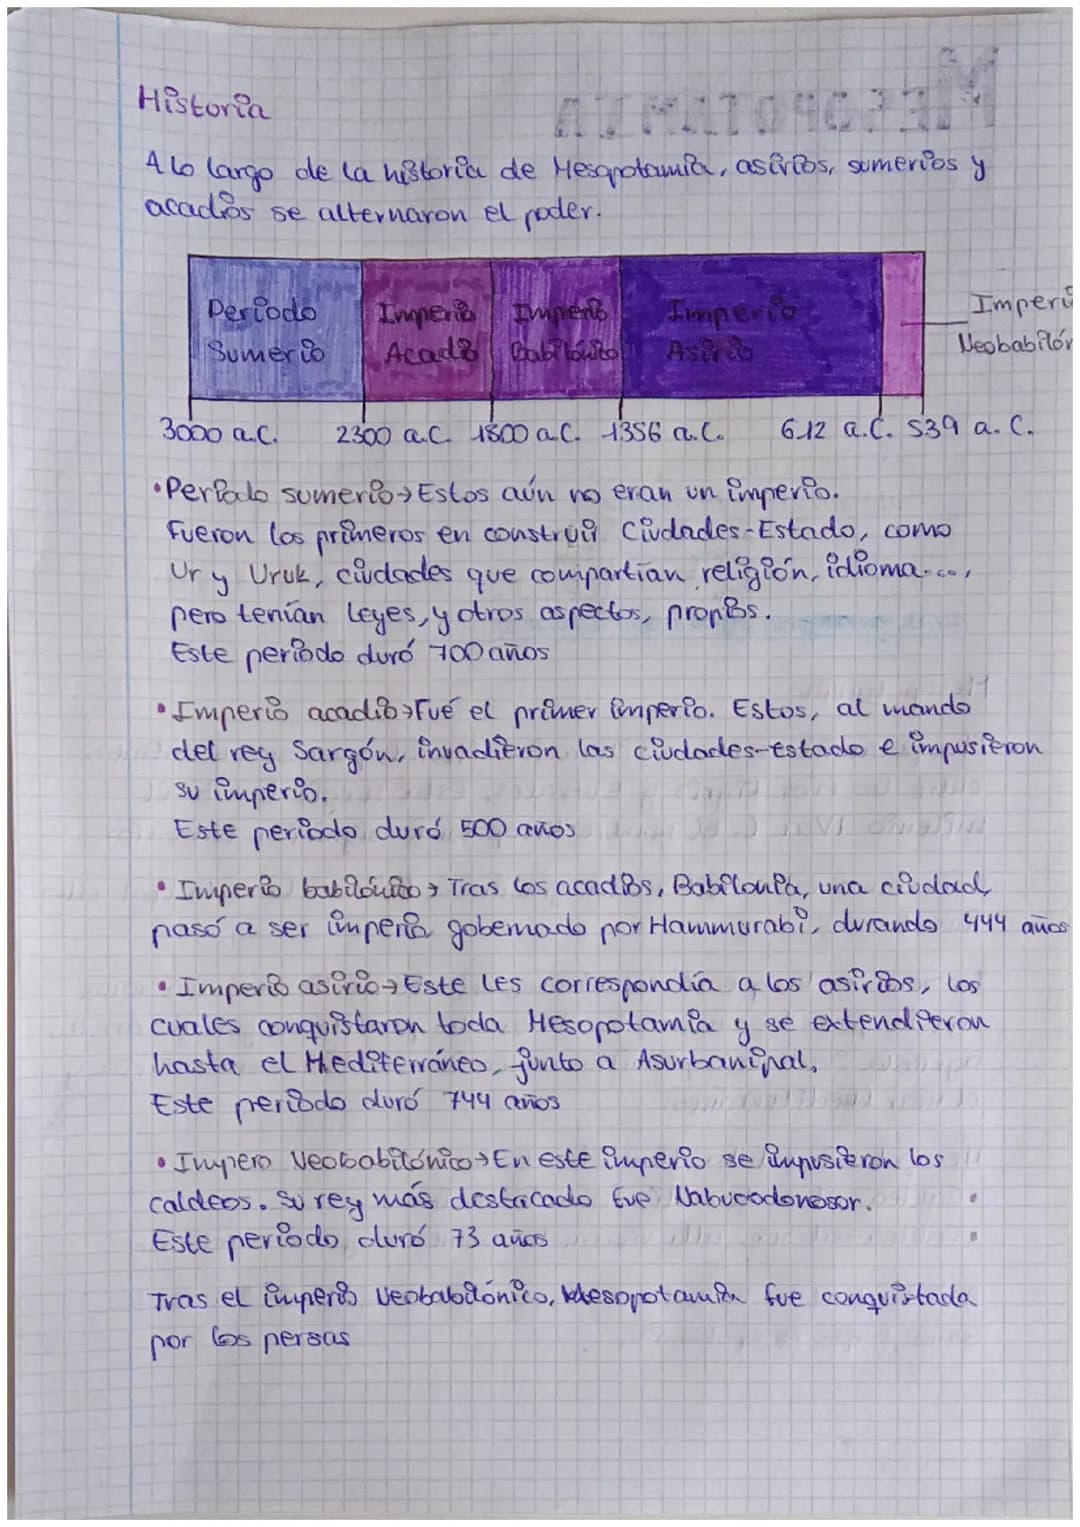 Historia
A lo largo de la historia de Mesopotamia, asirios, sumerios y
acadios se alternaron el poder.
Período
Sumerio
Imperio
Acadio
Imperio
Babilónico
Imperio
Asirio
Imperi
Neobabilón
3000 a.C. 2300 a.C. 1800 a.C. 1356 a.C. 612 a.C. 539 a.C.
•Período sumerio→Estos aún no eran un imperio.
Fueron los primeros en construir Ciudades-Estado, como
Ur y Uruk, ciudades que compartían religión, idioma...,
pero tenían leyes, y otros aspectos, propios.
Este período duró 700 años
•Imperio acadio→Fué el primer imperio. Estos, al mando
del rey Sargón, invadieron las ciudades-estado e impusieron
su imperio.
Este período duró 500 años
•Imperio babilónico→Tras los acadios, Babilonia, una ciudad,
pasó a ser imperio gobernado por Hammurabi, durando 444 años
•Imperio asirio→Este les correspondía a los asirios, los
cuales conquistaron toda Mesopotamia y se extendieron
hasta el Mediterráneo, junto a Asurbanipal.
Este período duró 744 años
•Impero Neobabilónico→En este imperio se impusieron los
caldeos. Su rey más destacado fue Nabucodonosor.
Este período duró 73 años
Tras el imperio Neobabilónico, Mesopotamia fue conquistada
por los persas